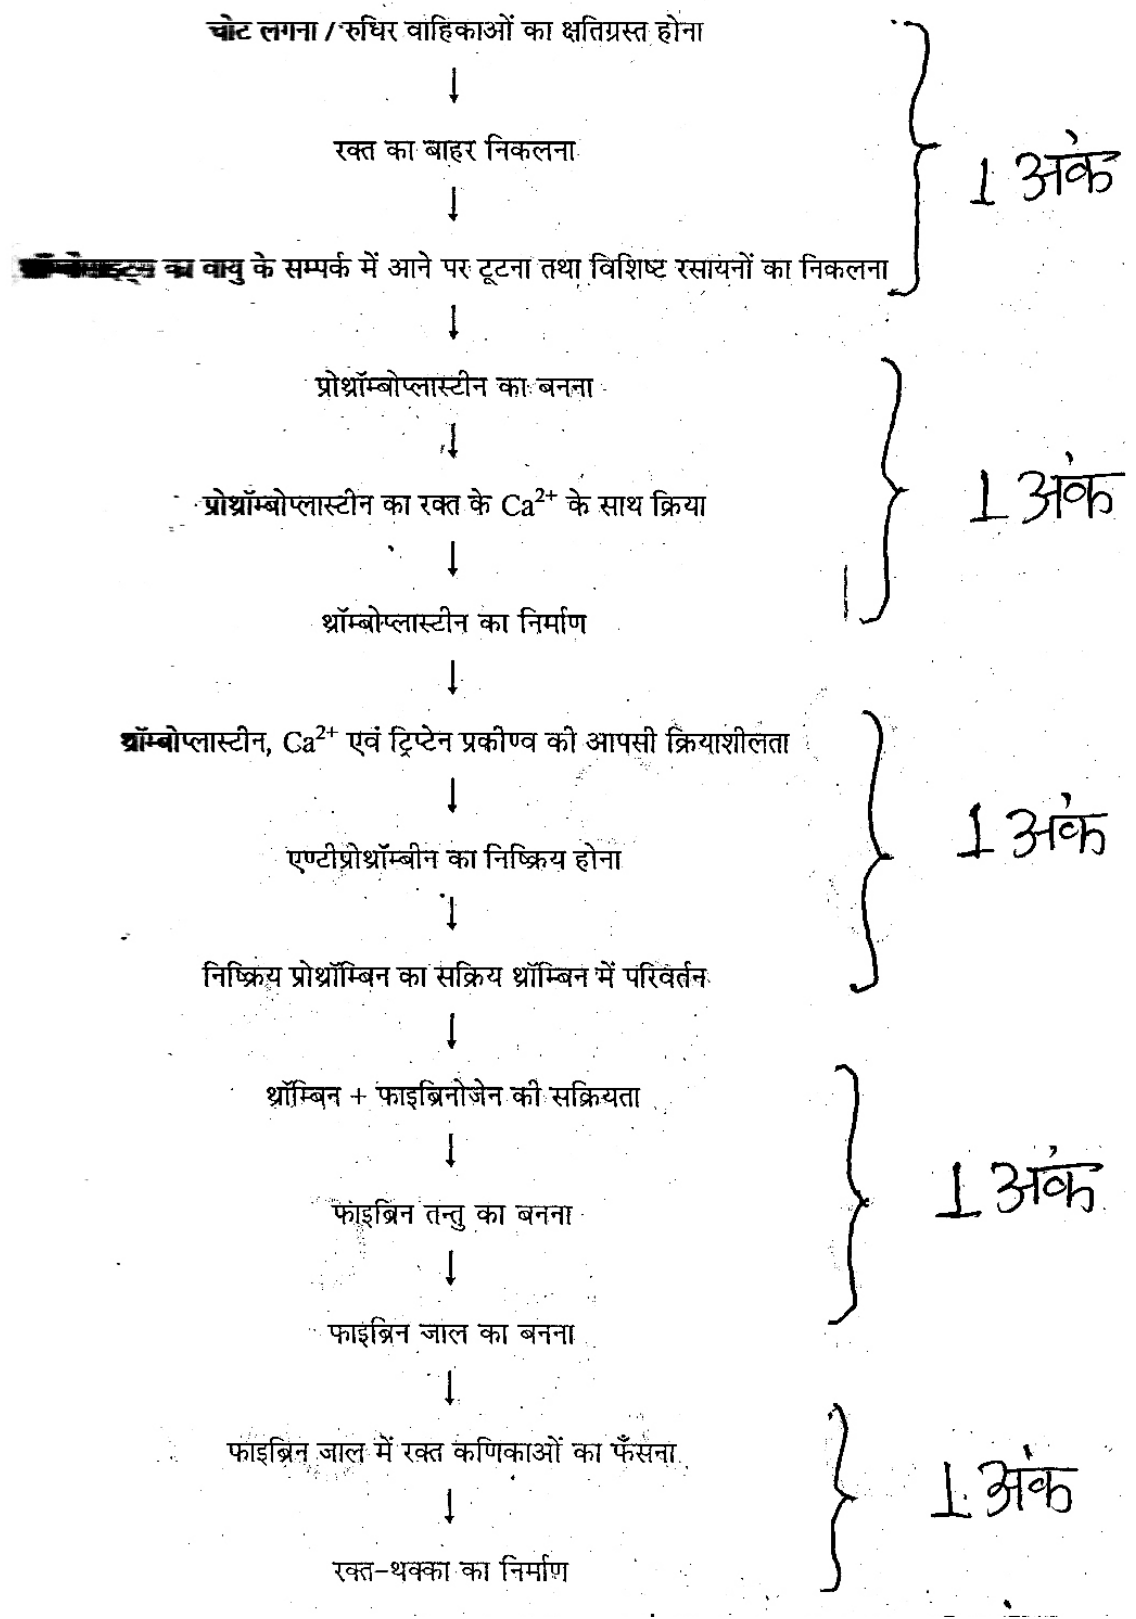 चोट लगना / रुधिर वाहिकाओं का क्षतिग्रस्त होना
↓
रक्त का बाहर निकलना
↓
का वायु के सम्पर्क में आने पर टूटना तथा विशिष्ट रसायनों का निकलना
1 अंक
↓
प्रोथ्रॉम्बोप्लास्टीन का बनना
↓
प्रोथ्रॉम्बोप्लास्टीन का रक्त के Ca²⁺ के साथ क्रिया
1 अंक
↓
थ्रॉम्बोप्लास्टीन का निर्माण
↓
थ्रॉम्बोप्लास्टीन, Ca²⁺ एवं ट्रिप्टेन प्रकीण्व की आपसी क्रियाशीलता
↓
एण्टीप्रोथ्रॉम्बीन का निष्क्रिय होना
1 अंक
↓
निष्क्रिय प्रोथ्रॉम्बिन का सक्रिय थ्रॉम्बिन में परिवर्तन
↓
थ्रॉम्बिन + फाइब्रिनोजेन की सक्रियता
↓
फाइब्रिन तन्तु का बनना
1 अंक
↓
फाइब्रिन जाल का बनना
↓
फाइब्रिन जाल में रक्त कणिकाओं का फँसना
1 अंक
↓
रक्त-थक्का का निर्माण